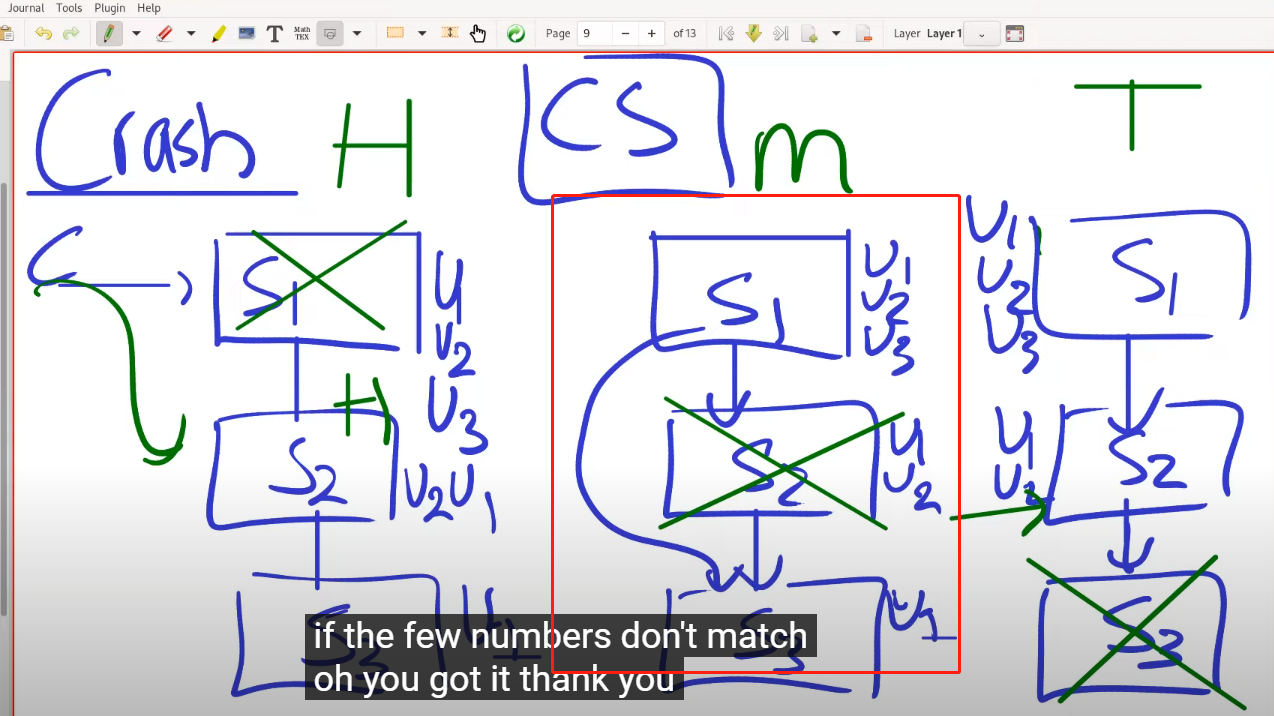 Journal Tools Plugin Help
T Math TEX Page 9 − + of 13 Layer Layer 1
Crash H CS m T
C
S1 U1 U2 U3
H
S2 U2 U1
S3
S1 U1 U2 U3
S2 U1 U2
S3 U1
U1 U2 U3 S1
U1 U2 S2
S3
if the few numbers don't match
oh you got it thank you